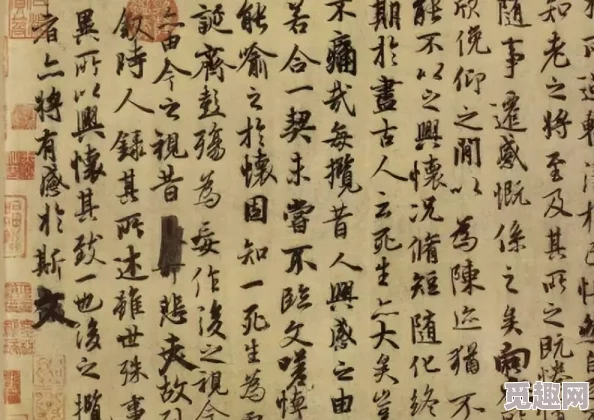 所遇暫得於己快然自
知老之將至及其所之既惓
隨事遷感慨係之矣向
欣俛仰之閒以為陳迹猶不
能不以之興懷況脩短隨化終
期於盡古人云死生亦大矣豈
不痛哉每攬昔人興感之由
若合一契未嘗不臨文嗟悼
能喻之於懷固知一死生為
誕齊彭殤為妄作後之視今
由今之視昔悲夫故列
敘時人錄其所述雖世殊事
異所以興懷其致一也後之攬
者亦將有感於斯文
觅趣网